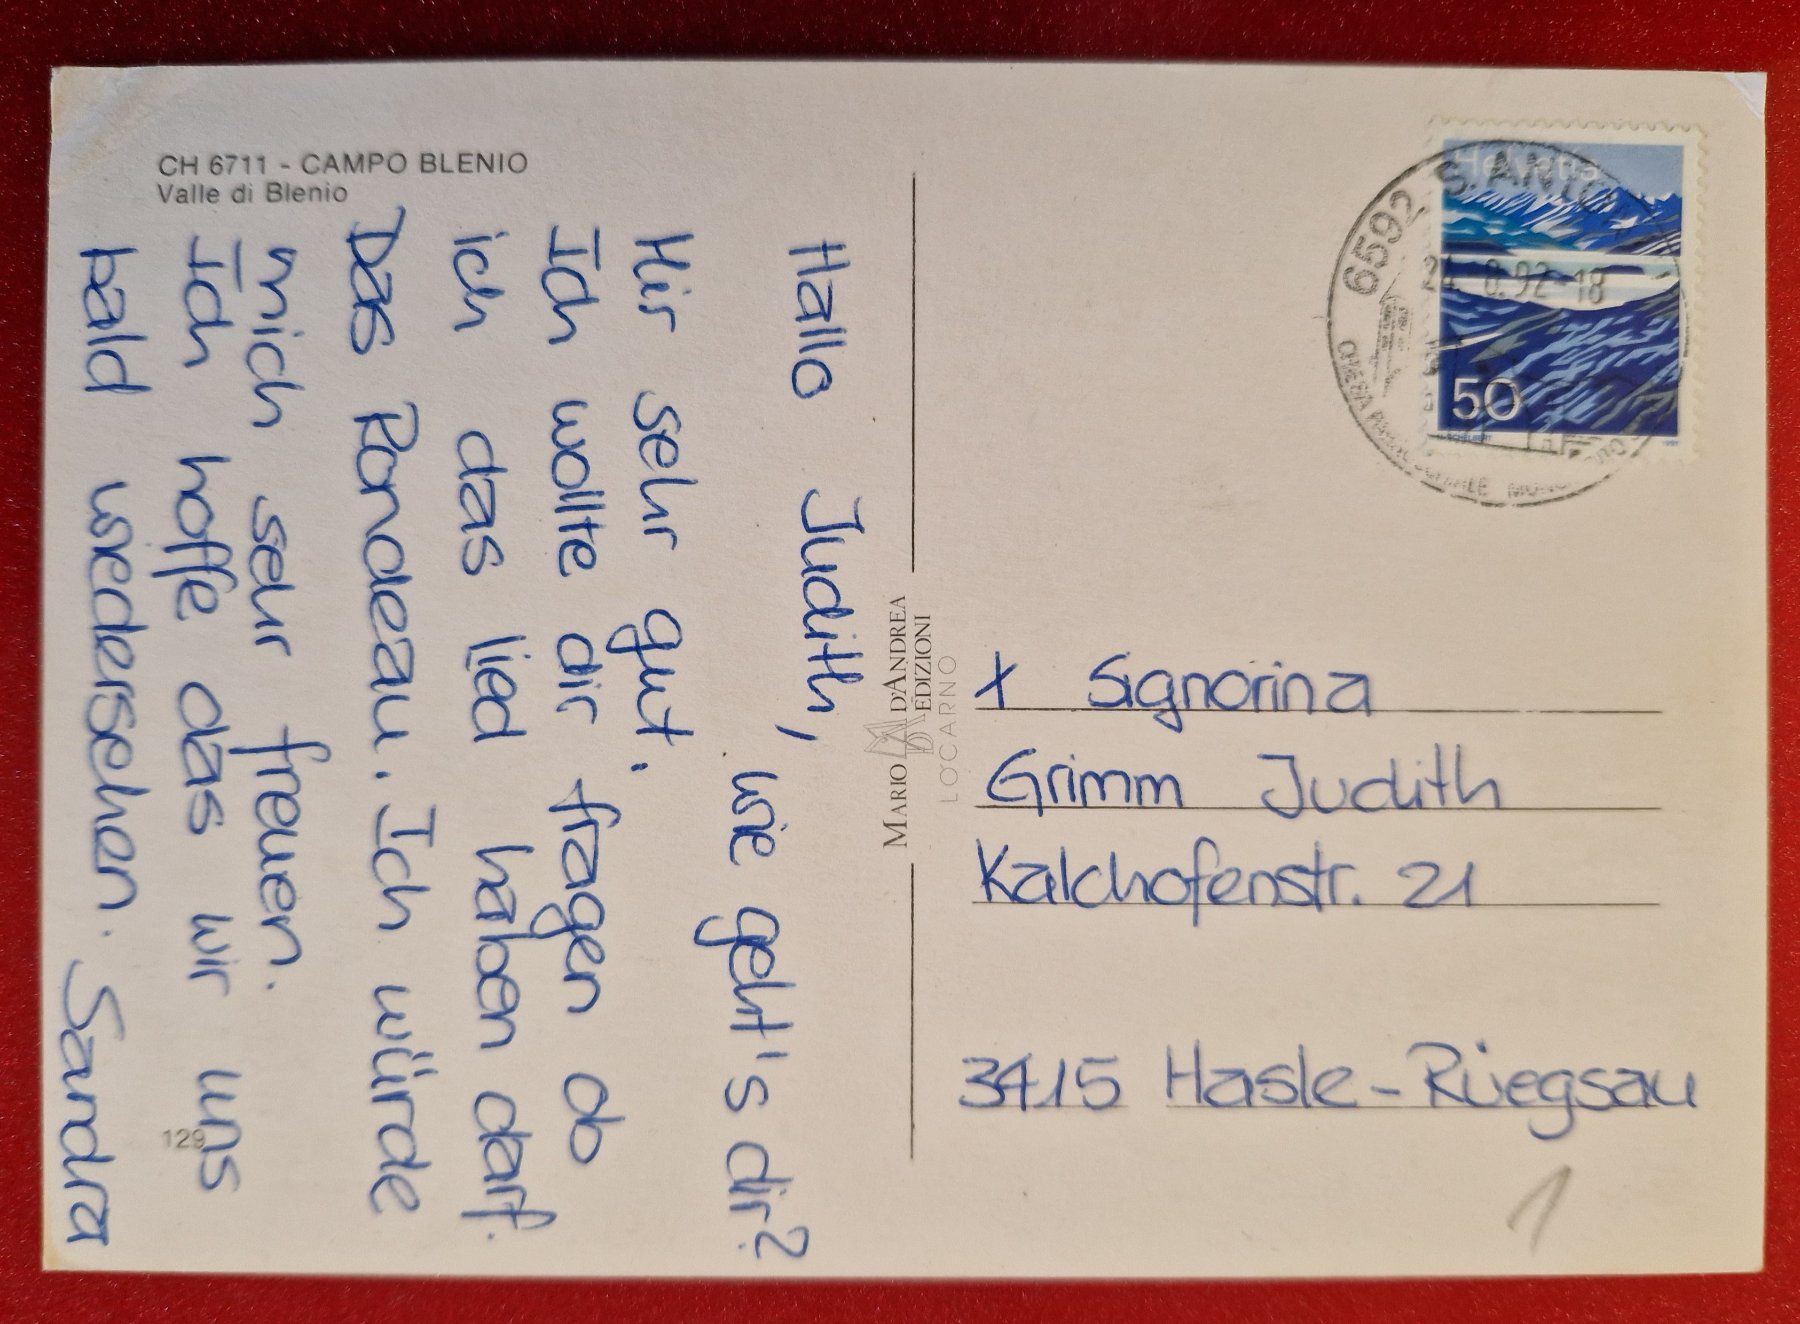 CH 6711 - CAMPO BLENIO
Valle di Blenio
Hallo Judith,
wie geht's dir?
Mir sehr gut.
Ich wollte dir fragen ob
ich das lied haben darf.
Das Rondeau. Ich würde
mich sehr freuen.
Ich hoffe das wir uns
bald wiedersehen. Sandra
129
MARIO D'ANDREA
EDIZIONI
LOCARNO
Helvetia
50
6592 S. ANTO
24. 8.92-18
X Signorina
Grimm Judith
Kalchofenstr. 21
3415 Hasle-Rüegsau
1